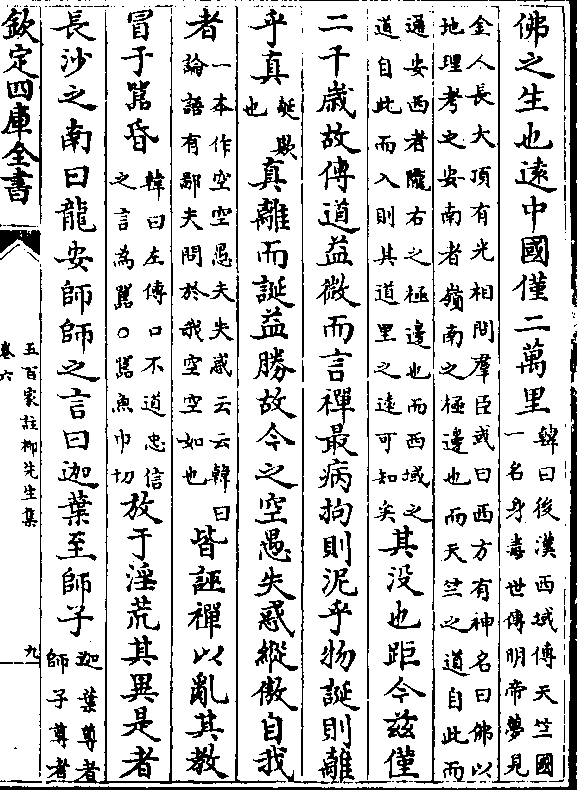 佛之生也遠中國僅二萬里
韓曰後漢西域傳天竺國
一名身毒世傳明帝夢見
金人長大頂有光相問羣臣或曰西方有神名曰佛以
地理考之安南者嶺南之極邊也而天竺之道自此而
通安西者隴右之極邊也而西域之
道自此而入則其道里之遠可知矣
其没也距今茲僅
二千歲故傳道益微而言禪最病拘則泥乎物誕則離
乎真
誕欺
也
真離而誕益勝故今之空愚失惑縱傲自我
者
一本作空空愚夫失惑云云韓曰
論語有鄙夫問於我空空如也
皆誣禪以亂其教
冒于嚚昏
韓曰左傳口不道忠信
之言為嚚○嚚魚巾切
放于淫荒其異是者
長沙之南曰龍安師師之言曰迦葉至師子
迦葉尊者
師子尊者
欽定四庫全書
五百家註柳先生集
卷六
九